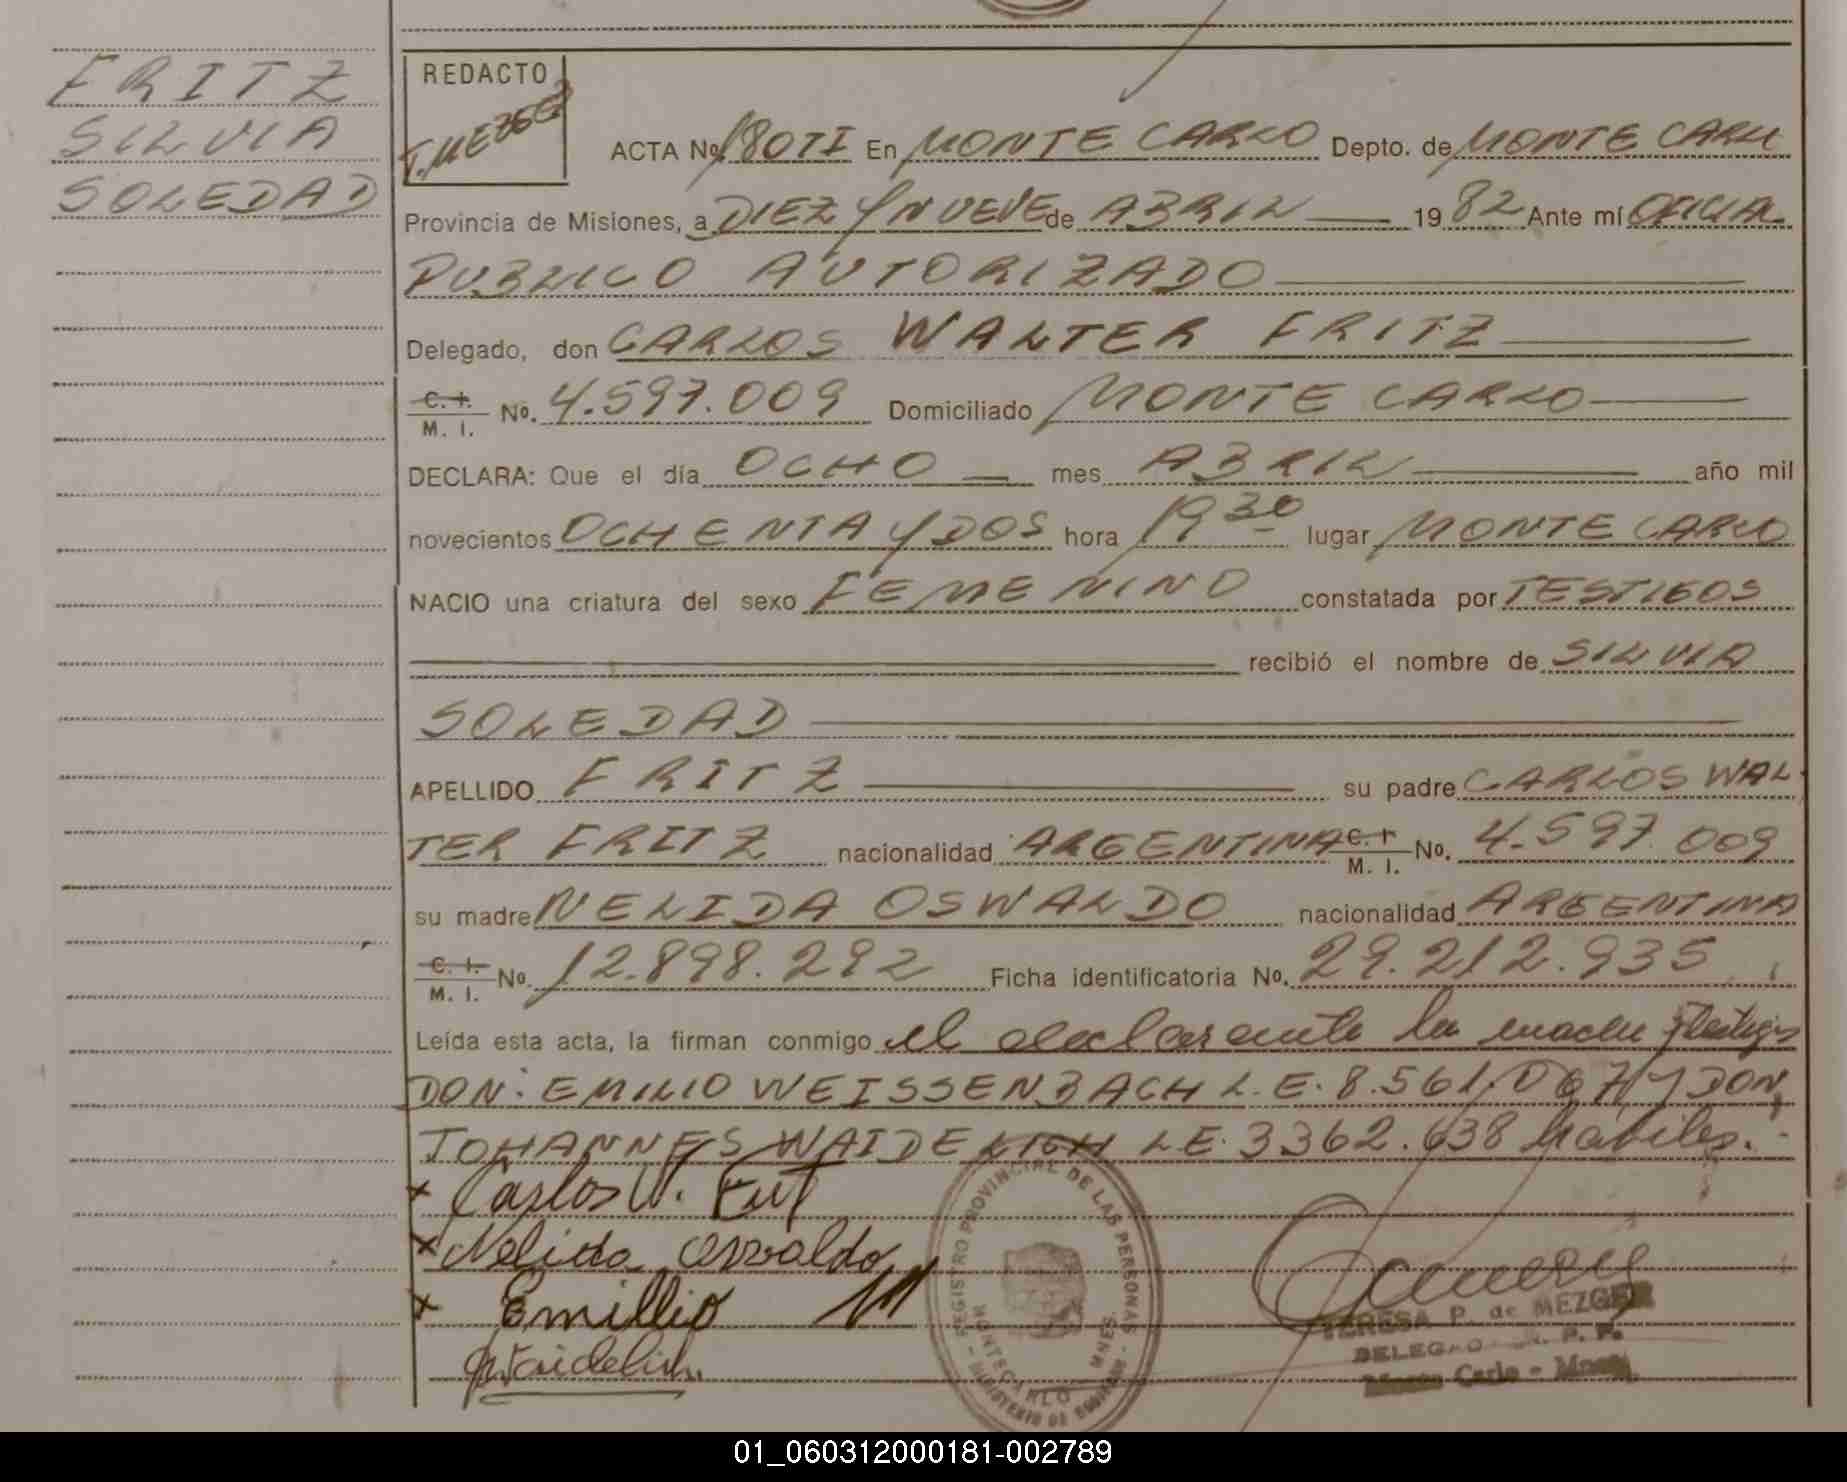 FRITZ
SILVIA
SOLEDAD
REDACTO
T. MEZGER
ACTA No 180TI En MONTE CARLO Depto. de MONTE CARLO
Provincia de Misiones, a DIEZ Y NUEVE de ABRIL 1982 Ante mí OFICIAL
PUBLICO AUTORIZADO
Delegado, don CARLOS WALTER FRITZ
C. I. M. I. No. 4.597.009 Domiciliado MONTE CARLO
DECLARA: Que el día OCHO mes ABRIL año mil
novecientos OCHENTA Y DOS hora 19 30 lugar MONTE CARLO
NACIO una criatura del sexo FEMENINO constatada por TESTIGOS
recibió el nombre de SILVIA
SOLEDAD
APELLIDO FRITZ su padre CARLOS WAL-
TER FRITZ nacionalidad ARGENTINA C. I. M. I. No. 4.597.009
su madre NELIDA OSWALDO nacionalidad ARGENTINA
C. I. M. I. No. 12.898.292 Ficha identificatoria No. 29.212.935
Leída esta acta, la firman conmigo el declarante la madre y testigos
DON: EMILIO WEISSENBACH L.E. 8.561.067 Y DON,
JOHANNES WAIDELICH L.E. 3362.638 habiles.-
x Carlos W. Frit
x Nelida Osvaldo
x Emillio
Waidelich
REGISTRO PROVINCIAL DE LAS PERSONAS
MONTECARLO MNES.
MINISTERIO DE GOBIERNO
TERESA P. de MEZGER
DELEGADO R. P. P.
Monte Carlo - Mnes
01_060312000181-002789